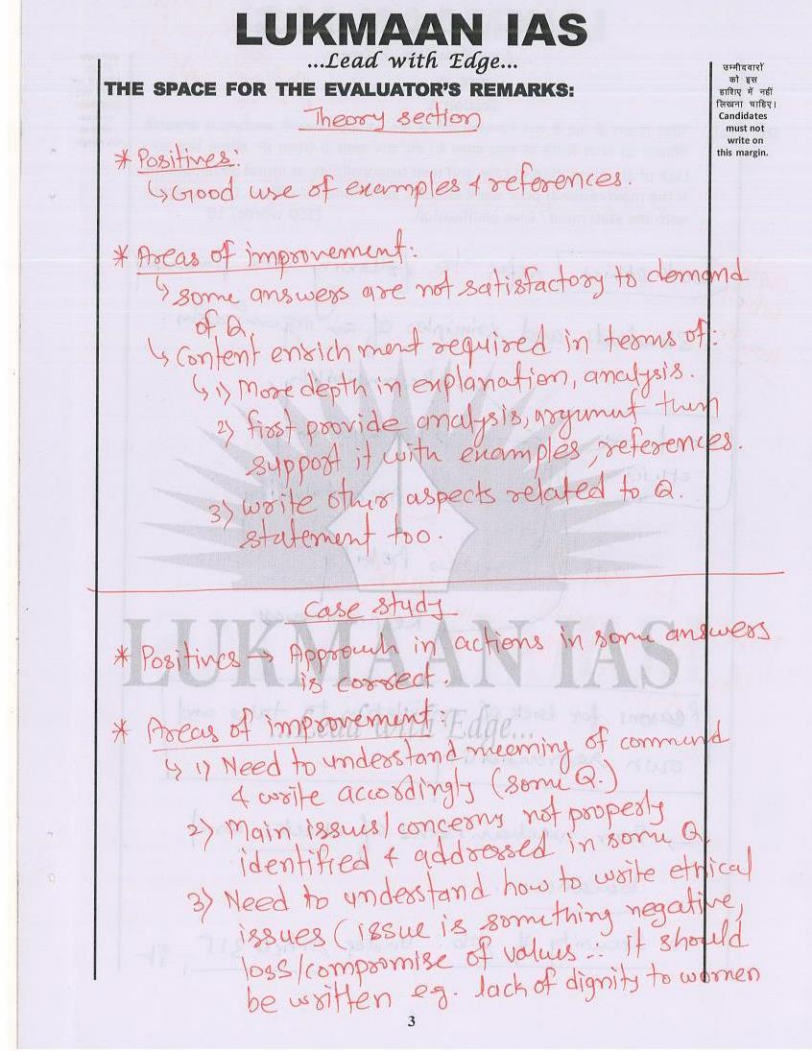 LUKMAAN IAS
...Lead with Edge...
THE SPACE FOR THE EVALUATOR'S REMARKS:
उम्मीदवारों
को इस
हाशिए में नहीं
लिखना चाहिए।
Candidates
must not
write on
this margin.
Theory section
* Positives:
↳ Good use of examples & references.
* Areas of improvement:
↳ some answers are not satisfactory to demand
of Q.
↳ Content enrichment required in terms of:
↳ 1) More depth in explanation, analysis.
2) first provide analysis, argument then
support it with examples, references.
3) write other aspects related to Q.
statement too.
Case study
LUKMAAN IAS
* Positives → Approach in actions in some answers
is correct.
* Areas of improvement:
...Lead with Edge...
↳ 1) Need to understand meaning of command
& write accordingly (some Q.)
2) Main issues/concerns not properly
identified & addressed in some Q.
3) Need to understand how to write ethical
issues (issue is something negative,
loss/compromise of values ∴ it should
be written eg. lack of dignity to women
3